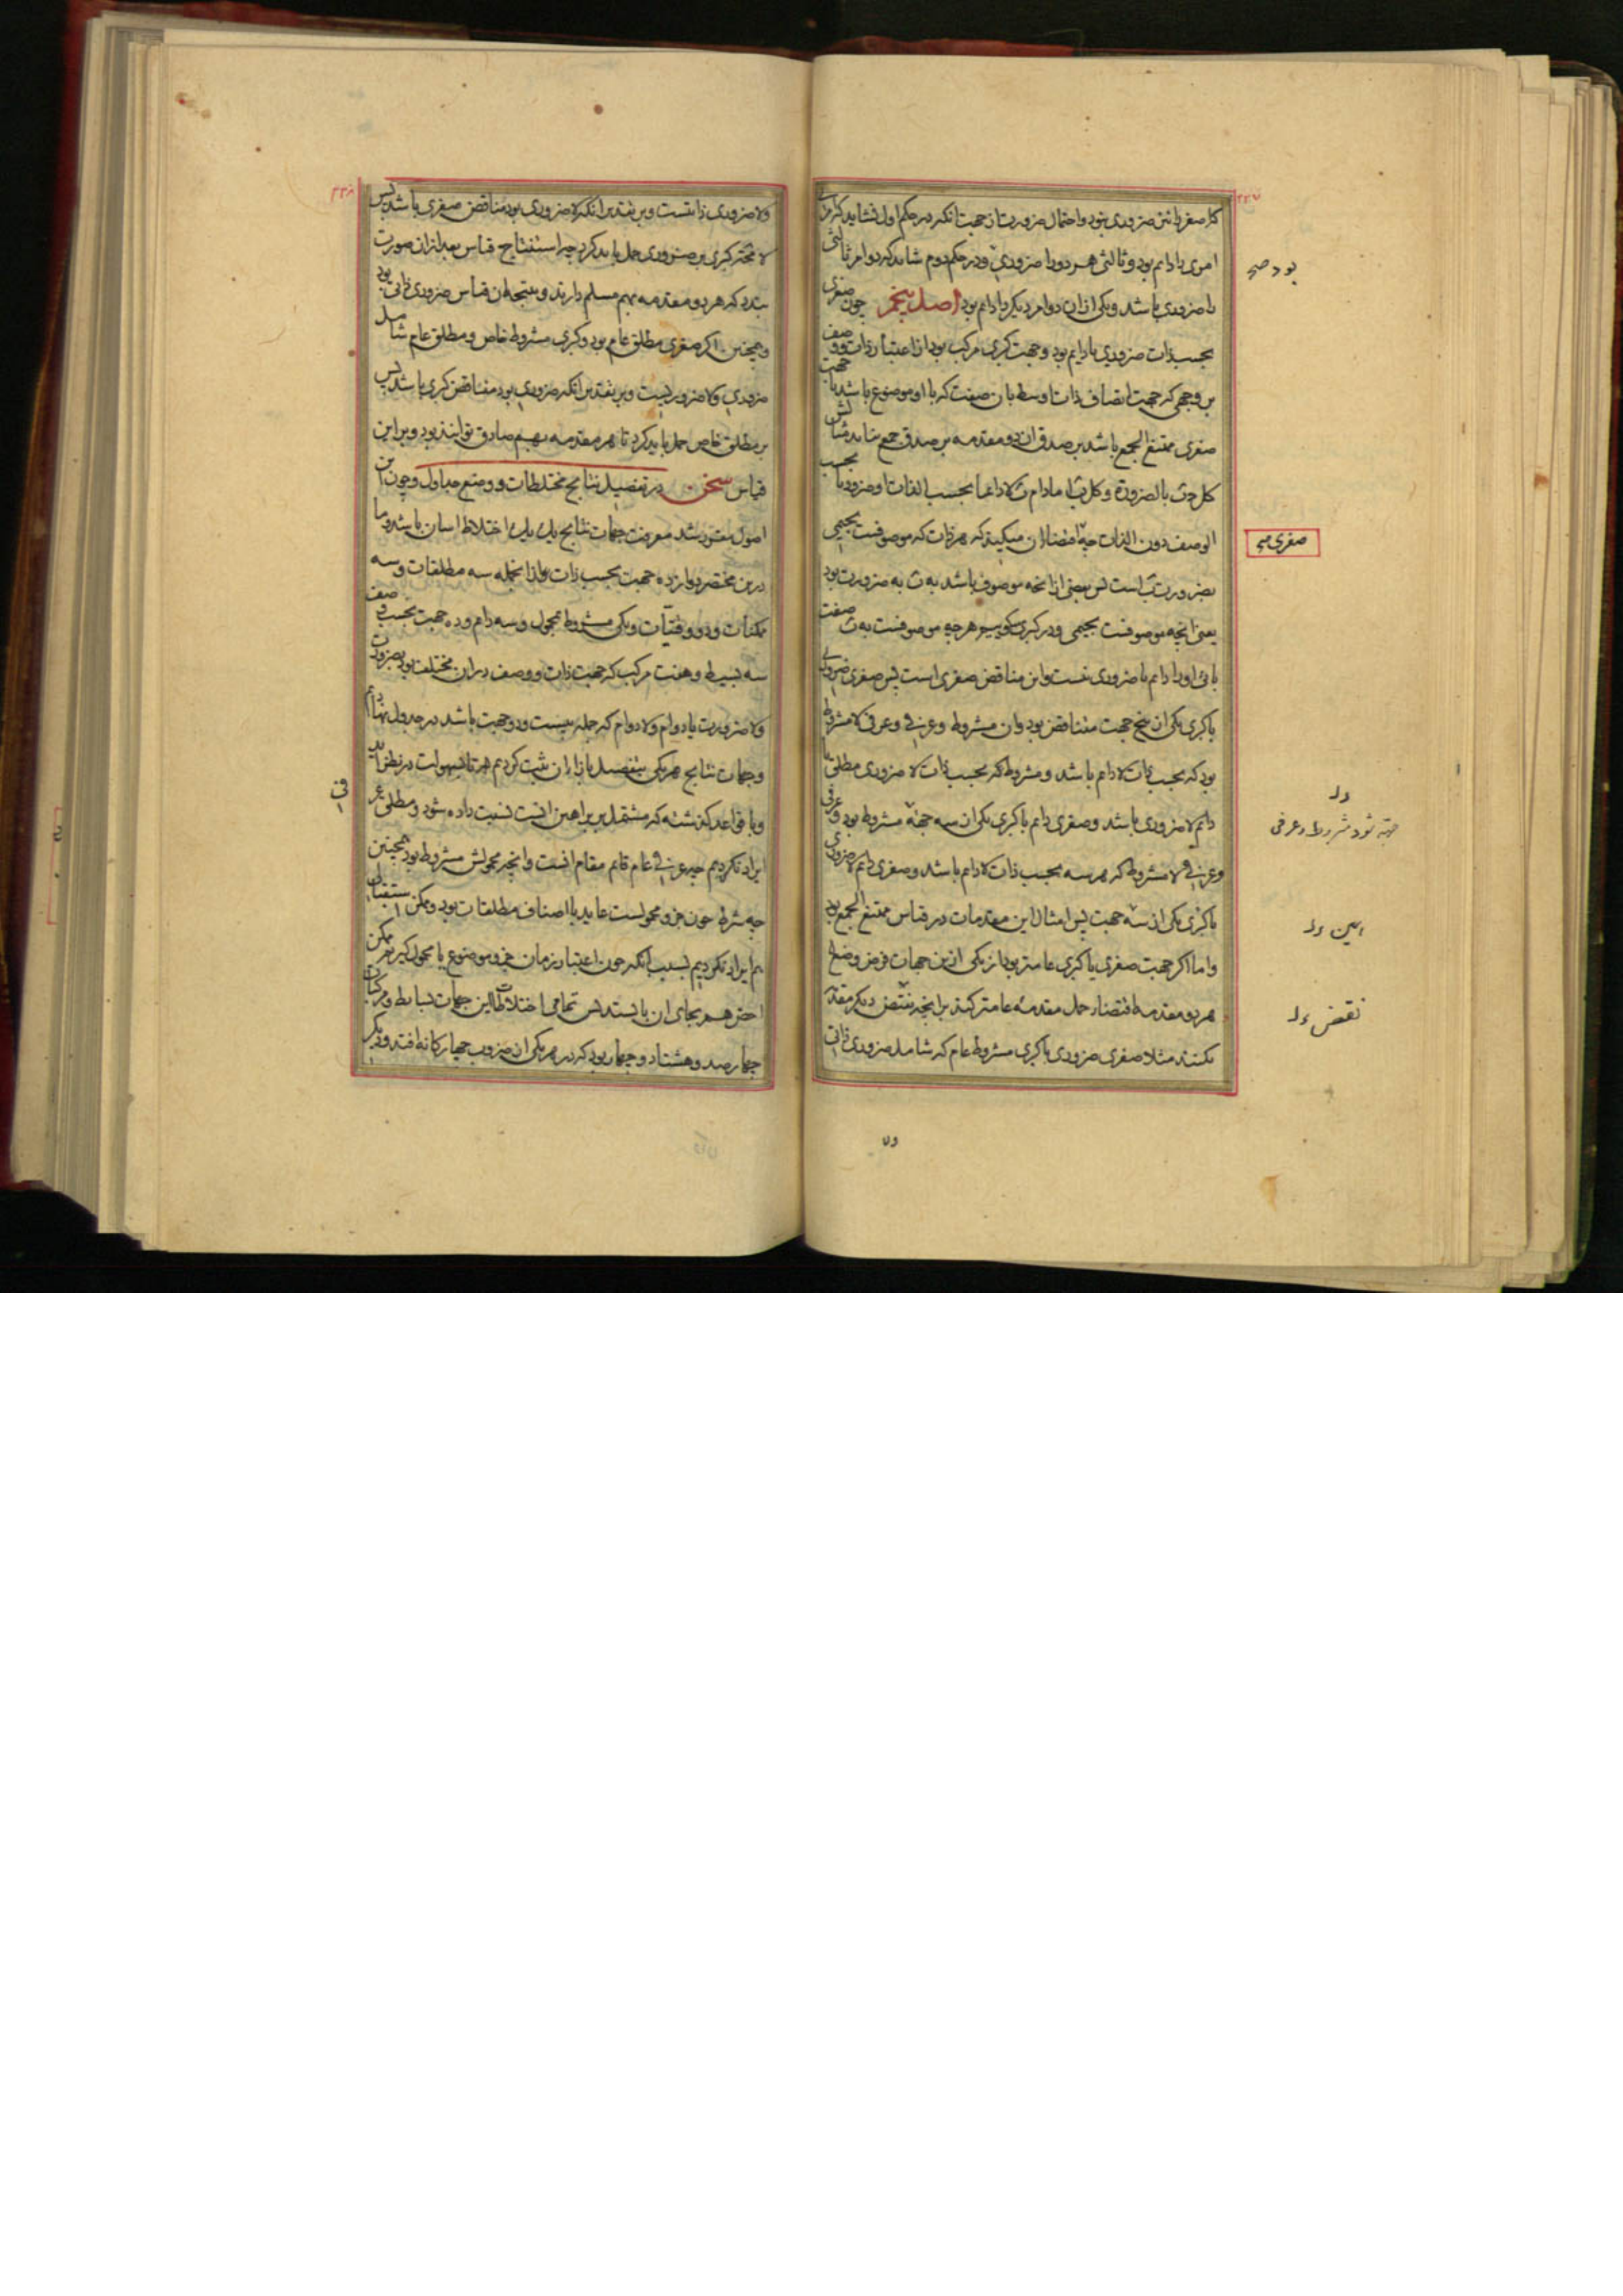 امری را دایم بود و ثالثی هر دو را ضروری و در حکم دوم شاید که دو امر ثالثی
را ضروری باشد و یکی ازان دو امر دیگر را دایم بود اصل پنجم چون صغری
بحسب ذات ضروری یا دایم بود و جهت کبری مرکب بود از اعتبار ذات و وصف
بر وجهی که جهت اتصاف ذات اوسط بان صفت که با او موضوع باشد با جهت
صغری ممتنع الجمع باشد بر صدق ان دو مقدمه بر صدق جمع نیاید مثالش
کل ج ب بالضرورة و کل ب ا مادام ب لا دائما بحسب الذات او ضروریا بحسب
الوصف دون الذات چه اقتضاء ان میکند که هر ذات که موصوفست بجیمی
بضرورت ب است پس بعضی از انچه موصوف باشد به ب به ضرورت بود
یعنی انچه موصوفست بجیمی و در کبری گوییم هر چه موصوفست به ب صفت
بائی او را دایم یا ضروری نیست و این مناقض صغری است پس صغری ضروری
با کبری یکی از پنج جهت متناقض بود و ان مشروط و عرفی و عرفی لا مشروط
بود که بحسب ذات لا دایم باشد و مشروط که بحسب ذات لا ضروری مطلق یا
دایم لا ضروری باشد و صغری دایم با کبری یکی ازان سه جهة مشروط بود و عرفی
و عرفی لا مشروط که هر سه بحسب ذات لا دایم باشد و صغری دایم لا ضروری
با کبری یکی از سه جهت پس امثال این مقدمات در قیاس ممتنع الجمع بود
و اما اگر جهت صغری یا کبری عامتر بود از یکی ازین جهات فرض وضع
هر دو مقدمه اقتضاء حمل مقدمه عامتر کند بر انچه نقیض دیگر مقدمه
نکند مثلا صغری ضروری با کبری مشروط عام که شامل ضروری ذاتی
بود صح
صغری صح
مشروط و عرفی
۲۲۷
ولا ضروری ذاتیست و بر تقدیر انکه لا ضروری بود مناقض صغری باشد پس
لا محاله کبری بر ضروری حمل باید کرد چه استنتاج قیاس بعد ازان صورت
بندد که هر دو مقدمه بهم مسلم دارند و نتیجه ان قیاس ضروری ذاتی بود
و همچنین اگر صغری مطلق عام بود و کبری مشروط خاص و مطلق عام شامل
ضروری و لا ضروریست و بر تقدیر انکه ضروری بود مناقض کبری باشد پس
بر مطلق خاص حمل باید کرد تا هر مقدمه بهم صادق توانند بود و برین
قیاس سخن در تفصیل نتایج مختلطات و وضع جداول و چون این
اصول مقرر شد معرفت جهات نتایج یک یک اختلاط اسان باشد و ما
درین مختصر دوازده جهت بحسب ذات و ازانجمله سه مطلقات و سه
ممکنات و دو وقتیات و یکی مشروط محمول و سه دایم و ده جهت بحسب وصف
سه بسیط و هفت مرکب که جهت ذات و وصف دران مختلف بود بضرورت
و لا ضرورت یا دوام و لا دوام که جمله بیست و دو جهت باشد در جدول نهادیم
و جهات نتایج هر یکی بتفصیل بازاء ان ثبت کردیم تا بسهولت در نظر اید
و با قواعد گذشته که مشتمل بر براهین انست نسبت داده شود و مطلق عرفی
ایراد نکردیم چه عرفی عام قایم مقام انست و انچه محمولش مشروط بود همچنین
چه شرط چون جزو محمولست عاید با اصناف مطلقات بود و ممکن استقبالی
هم ایراد نکردیم بسبب انکه چون اعتبار زمان جزو موضوع یا محمول گیریم ممکن
اخص هم بجای ان بایستد پس تمامی اختلاطات این جهات بسایط و مرکبات
چهارصد و هشتاد و چهار بود که در هر یکی ازان ضروب چهارگانه افتد و دیگر
۲۲۸